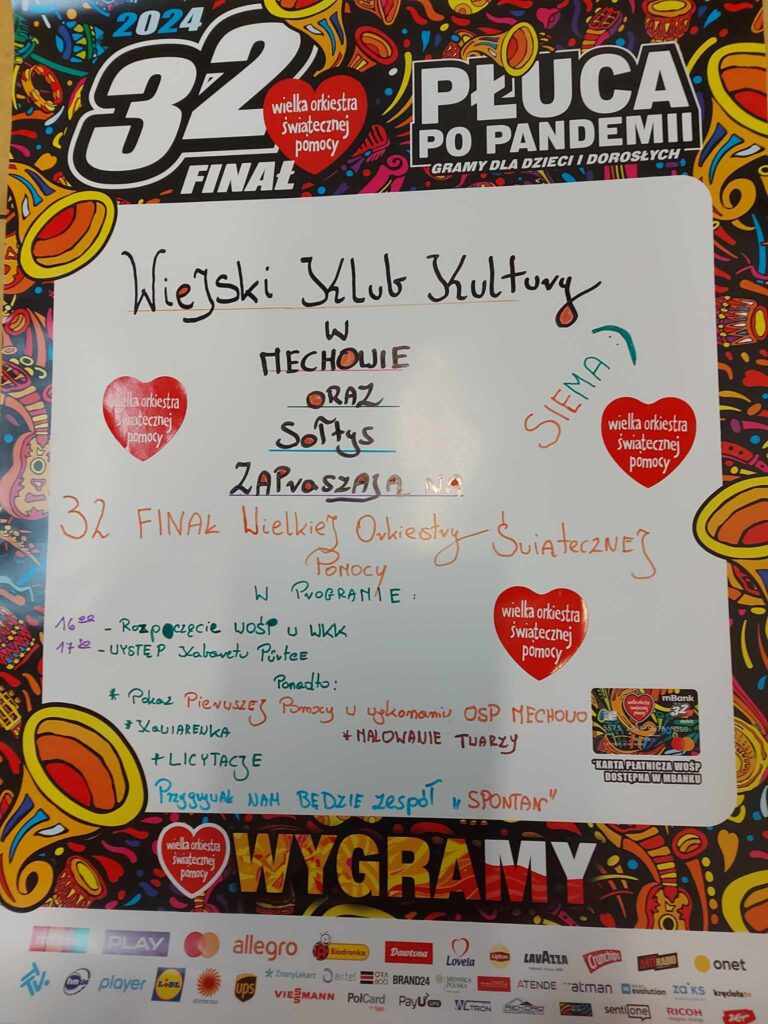 2024
32
FINAŁ
wielka orkiestra
świątecznej
pomocy
PŁUCA
PO PANDEMII
GRAMY DLA DZIECI I DOROSŁYCH
Wiejski Klub Kultury
W
MECHOWIE
ORAZ
SOŁTYS
ZAPRASZAJĄ NA
SIEMA
wielka orkiestra
świątecznej
pomocy
wielka orkiestra
świątecznej
pomocy
32 FINAŁ Wielkiej Orkiestry Świątecznej
Pomocy
W PROGRAMIE:
wielka orkiestra
świątecznej
pomocy
16 00 - Rozpoczęcie WOŚP w WKK
- WYSTĘP Kabaretu
Ponadto:
* Pokaz Pierwszej Pomocy w wykonaniu OSP MECHOWO
* Kawiarenka
* MALOWANIE TWARZY
* LICYTACJE
mBank
32
*KARTA PŁATNICZA WOŚP
DOSTĘPNA W MBANKU
Przygrywał NAM BĘDZIE zespół "SPONTAN"
wielka orkiestra
świątecznej
pomocy
WYGRAMY
PLAY allegro Biedronka Dawtona Lovela Lipton LAVAZZA Crunchips ANTYRADIO onet
player LIDL ups ZnanyLekarz airtel BRAND24 MENNICA POLSKA ATENDE atman evolution ZAiKS kręciołatv
VIESSMANN PolCard PayU WCTRON REKORD sentione RICOH ZET